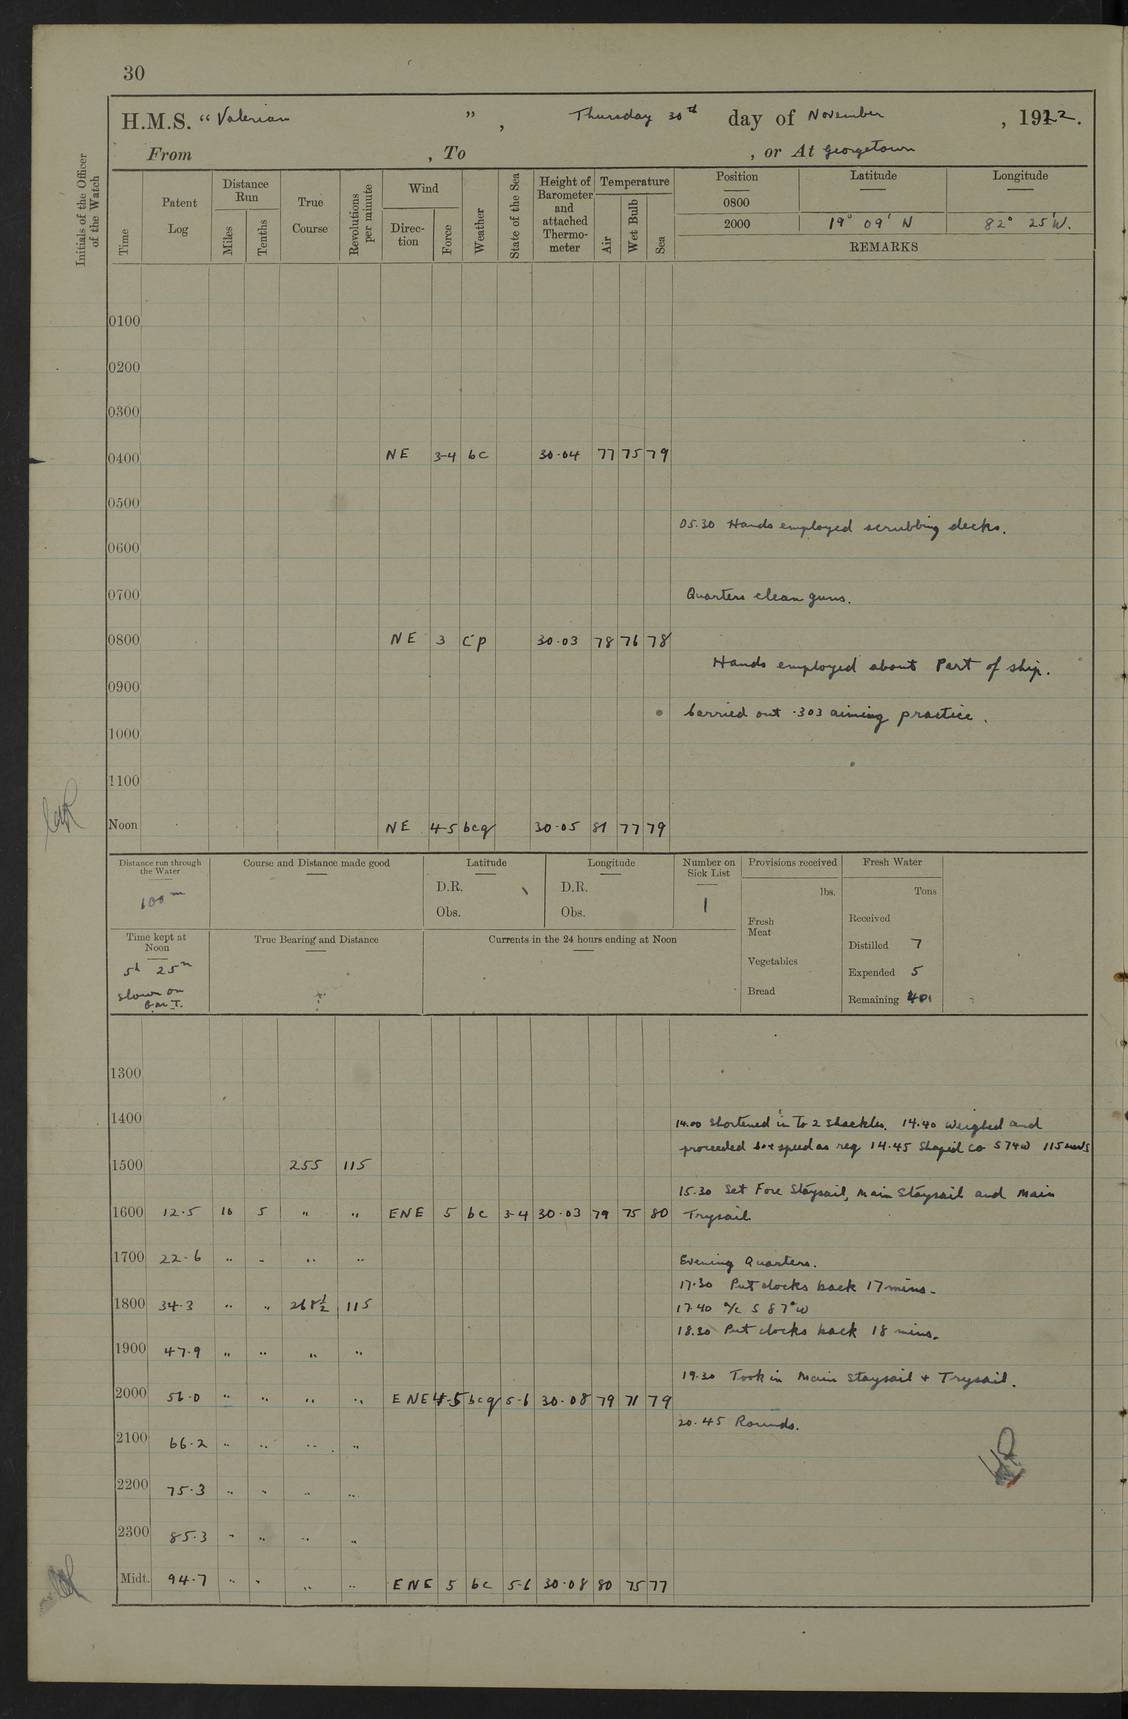 30
H.M.S. "Valerian", Thursday 30th day of November, 1922.
From , To , or At Georgetown
Initials of the Officer of the Watch
Time
Patent Log
Distance Run
Miles
Tenths
True Course
Revolutions per minute
Wind
Direc-tion
Force
Weather
State of the Sea
Height of Barometer and attached Thermo-meter
Temperature
Air
Wet Bulb
Sea
Position Latitude Longitude
0800
2000 19° 09' N 82° 25' W.
REMARKS
0100
0200
0300
0400 NE 3-4 bc 30.04 77 75 79
0500
05.30 Hands employed scrubbing decks.
0600
0700 Quarters clean guns.
0800 NE 3 cp 30.03 78 76 78
Hands employed about Part of ship.
0900
Carried out .303 aiming practice.
1000
1100
Noon NE 4-5 bcq 30.05 81 77 79
Distance run through the Water
100 m
Course and Distance made good
Latitude
D.R.
Obs.
Longitude
D.R.
Obs.
Number on Sick List
1
Provisions received
lbs.
Fresh Meat
Vegetables
Bread
Fresh Water
Tons
Received
Distilled 7
Expended 5
Remaining 401
Time kept at Noon
5h 25m
slow on G.M.T.
True Bearing and Distance
Currents in the 24 hours ending at Noon
1300
1400 14.00 Shortened in to 2 shackles. 14.40 Weighed and
proceeded speed as req 14.45 Shaped co S 74 W 115 revs
1500 255 115
15.30 Set Fore Staysail, Main Staysail and Main
1600 12.5 10 5 " " ENE 5 bc 3-4 30.03 79 75 80 Trysail
1700 22.6 " " " " Evening Quarters.
17.30 Put clocks back 17 mins.
1800 34.3 " " 267½ 115 17.40 a/c S 87° W
18.30 Put clocks back 18 mins.
1900 47.9 " " " "
19.30 Took in Main Staysail + Trysail.
2000 56.0 " " " " ENE 4-5 bcq 5-6 30.08 79 71 79
20.45 Rounds.
2100 66.2 " " " "
2200 75.3 " " " "
2300 85.3 " " " "
Midt. 94.7 " " " " ENE 5 bc 5-6 30.08 80 75 77